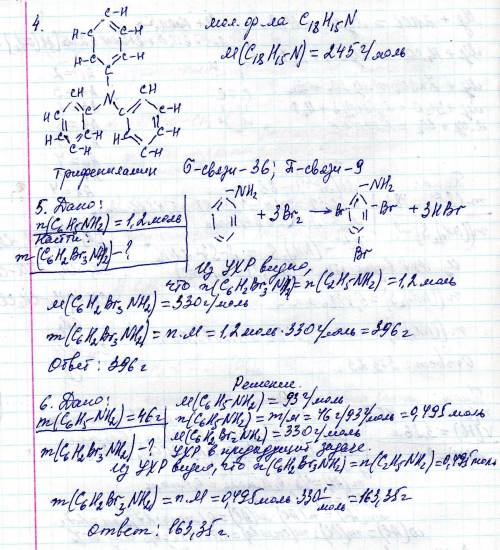 4.
мол. ф-ла C₁₈H₁₅N
M(C₁₈H₁₅N) = 245 г/моль
Трифениламин
б-связи - 36; π-связи - 9
5. Дано:
n(C₆H₅NH₂) = 1,2 моль
Найти:
m(C₆H₂Br₃NH₂) - ?
NH₂ + 3Br₂ → NH₂ Br Br Br + 3HBr
Из УХР видно,
что n(C₆H₂Br₃NH₂) = n(C₂H₅NH₂) = 1,2 моль
M(C₆H₂Br₃NH₂) = 330 г/моль
m(C₆H₂Br₃NH₂) = n·M = 1,2 моль · 330 г/моль = 396 г
Ответ: 396 г
Решение.
6. Дано:
m(C₆H₅NH₂) = 46 г
m(C₆H₂Br₃NH₂) - ?
M(C₆H₅NH₂) = 93 г/моль
n(C₆H₅NH₂) = m/M = 46 г/93 г/моль = 0,495 моль
M(C₆H₂Br₃NH₂) = 330 г/моль
УХР в предыдущей задаче.
Из УХР видно, что n(C₆H₂Br₃NH₂) = n(C₂H₅NH₂) = 0,495 моль
m(C₆H₂Br₃NH₂) = n·M = 0,495 моль · 330 г/моль = 163,35 г
Ответ: 163,35 г.